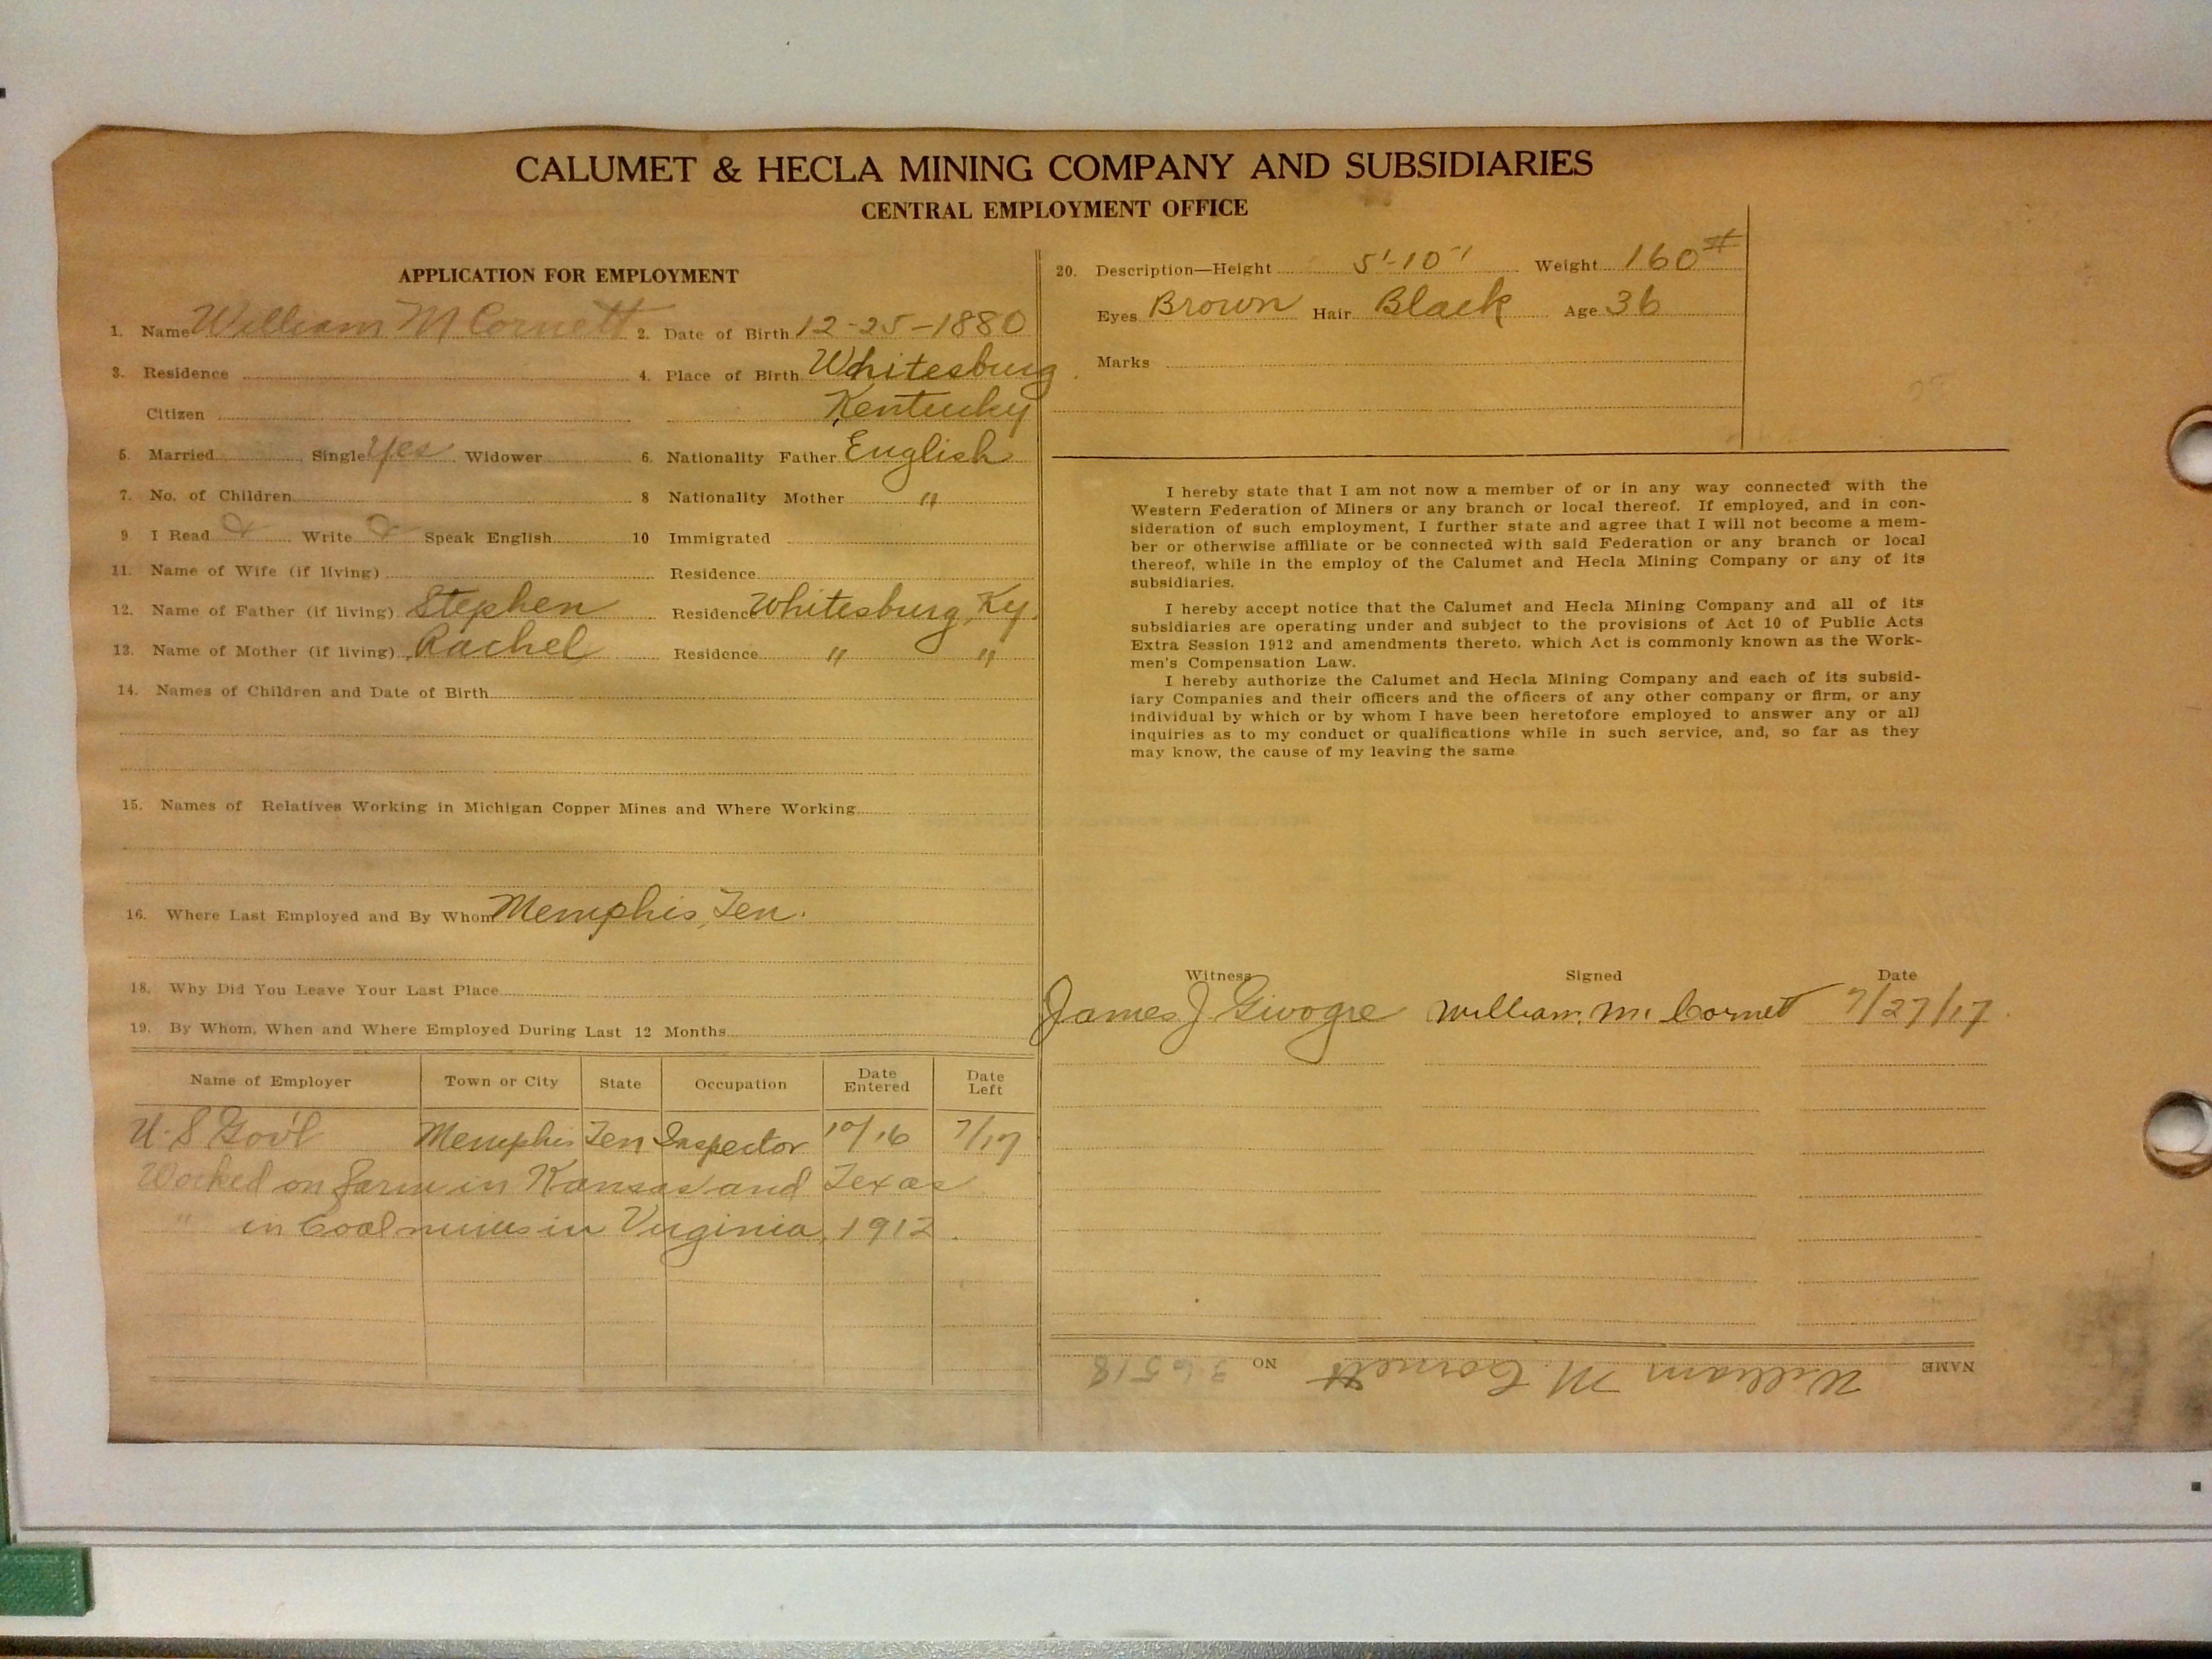 CALUMET & HECLA MINING COMPANY AND SUBSIDIARIES
CENTRAL EMPLOYMENT OFFICE
APPLICATION FOR EMPLOYMENT
1. Name William M Cornett 2. Date of Birth 12-25-1880
3. Residence 4. Place of Birth Whitesburg
Citizen Kentucky
5. Married Single Yes Widower 6. Nationality Father English
7. No. of Children 8 Nationality Mother "
9 I Read Write Speak English 10 Immigrated
11. Name of Wife (if living) Residence
12. Name of Father (if living) Stephen Residence Whitesburg, Ky.
13. Name of Mother (if living) Rachel Residence " "
14. Names of Children and Date of Birth
15. Names of Relatives Working in Michigan Copper Mines and Where Working
16. Where Last Employed and By Whom Memphis, Ten.
18. Why Did You Leave Your Last Place
19. By Whom, When and Where Employed During Last 12 Months
Name of Employer Town or City State Occupation Date Entered Date Left
U.S Gov't Memphis Ten Inspector 10/16 7/17
Worked on farm in Kansas and Texas
" in Coal mines in Virginia, 1912.
20. Description—Height 5'-10" Weight 160#
Eyes Brown Hair Black Age 36
Marks
I hereby state that I am not now a member of or in any way connected with the
Western Federation of Miners or any branch or local thereof. If employed, and in con-
sideration of such employment, I further state and agree that I will not become a mem-
ber or otherwise affiliate or be connected with said Federation or any branch or local
thereof, while in the employ of the Calumet and Hecla Mining Company or any of its
subsidiaries.
I hereby accept notice that the Calumet and Hecla Mining Company and all of its
subsidiaries are operating under and subject to the provisions of Act 10 of Public Acts
Extra Session 1912 and amendments thereto, which Act is commonly known as the Work-
men's Compensation Law.
I hereby authorize the Calumet and Hecla Mining Company and each of its subsid-
iary Companies and their officers and the officers of any other company or firm, or any
individual by which or by whom I have been heretofore employed to answer any or all
inquiries as to my conduct or qualifications while in such service, and, so far as they
may know, the cause of my leaving the same
Witness Signed Date
James J Givogre William. M. Cornett 7/27/17
NAME William M. Cornett NO 36518